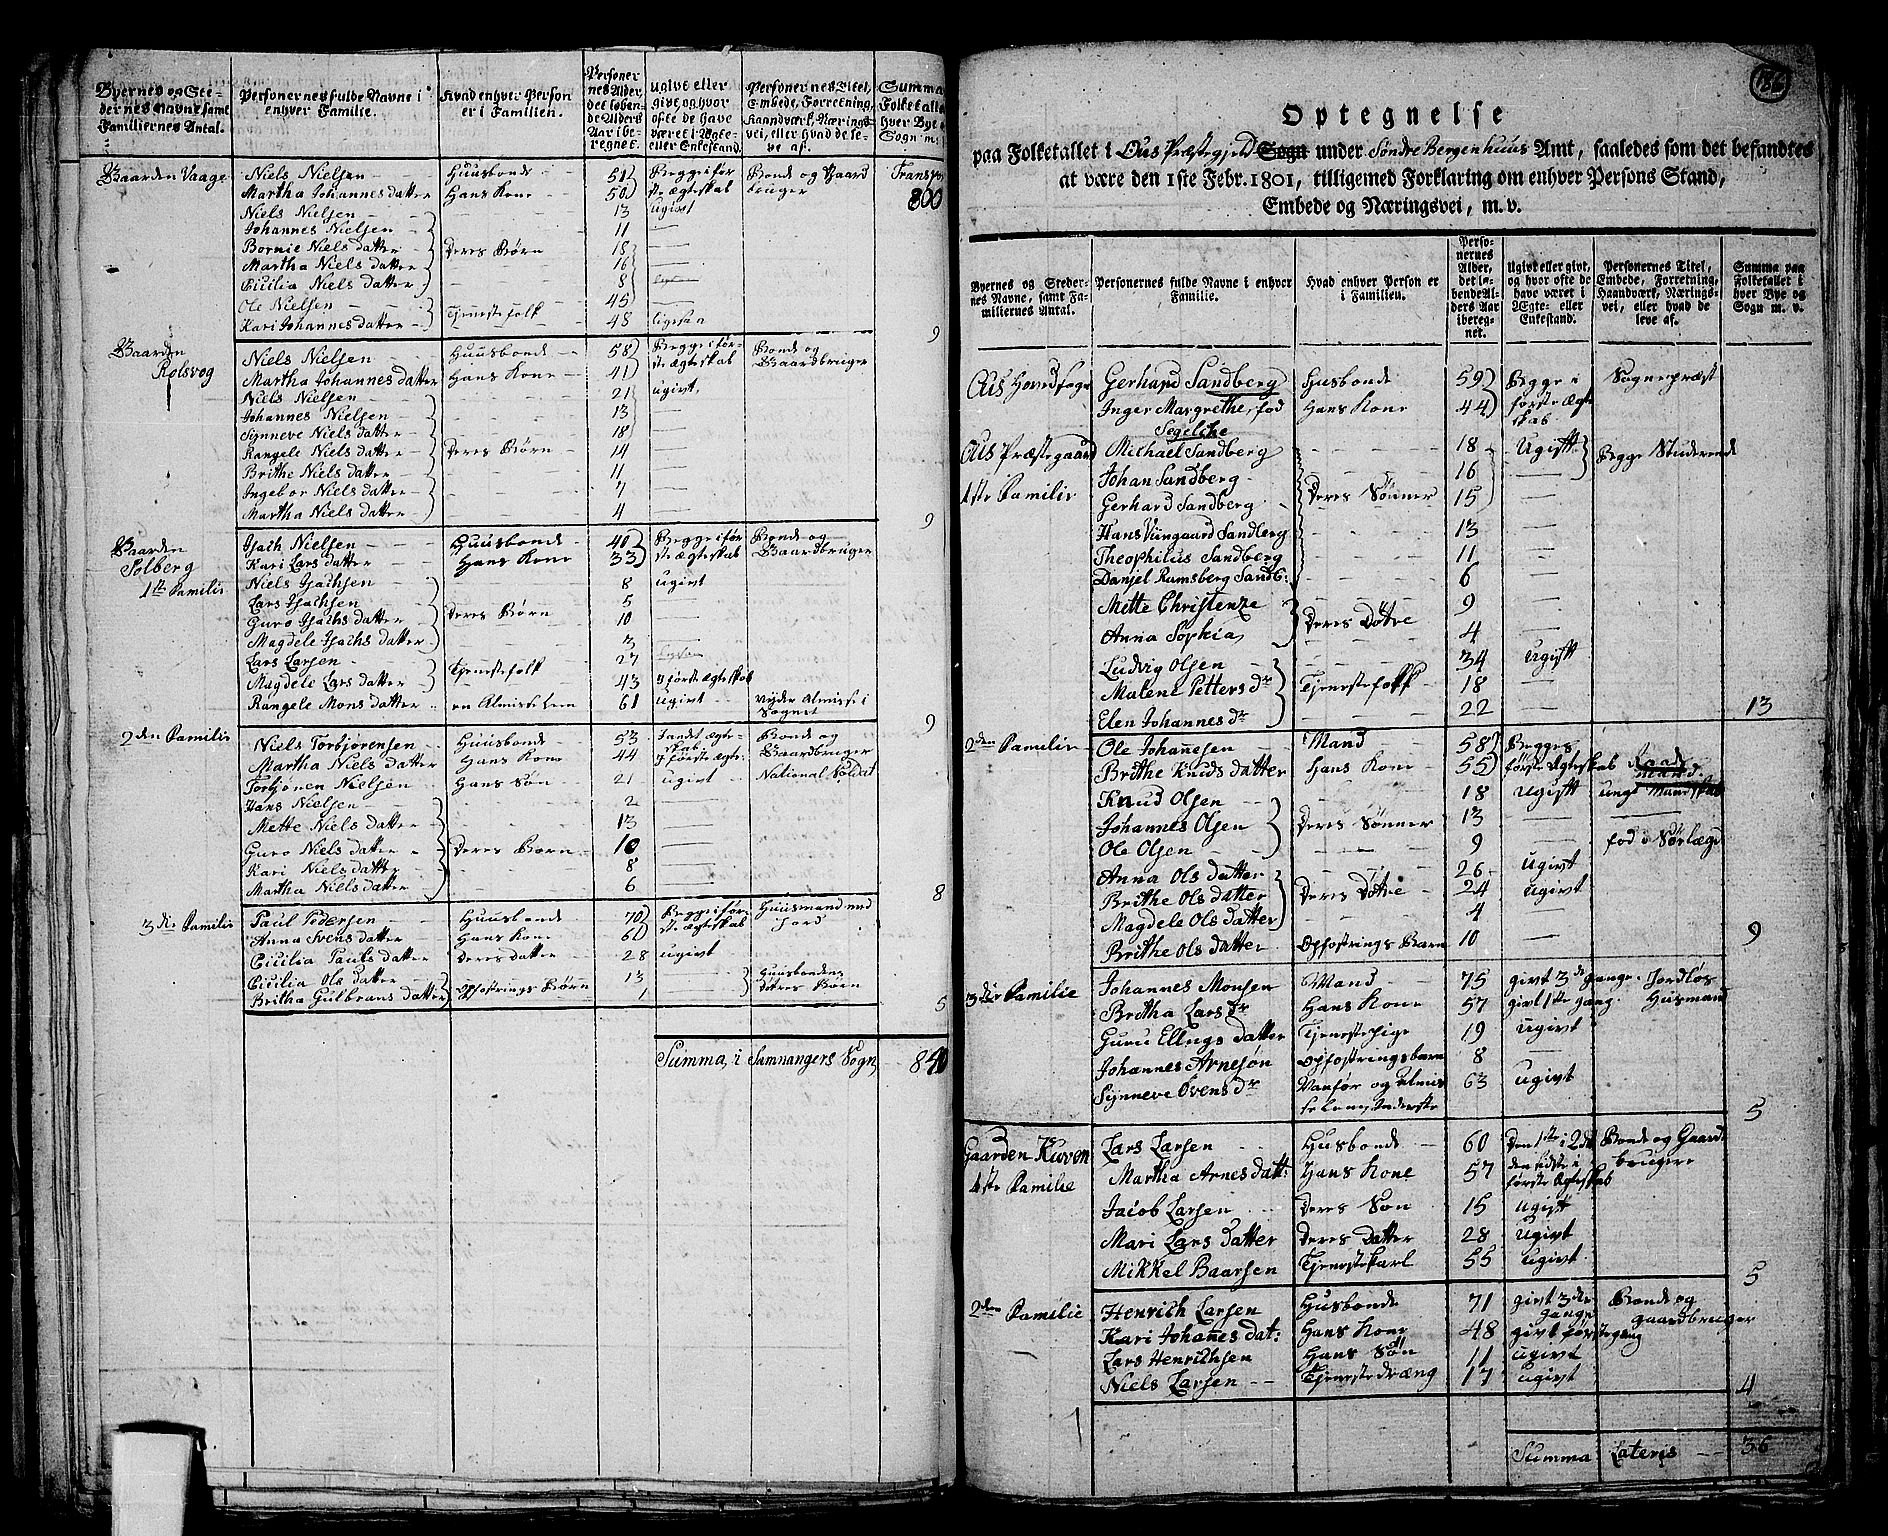 Byernes og Ste-
dernes navne samt
Familiernes Antal.
Personernes fulde Navne i
enhver Familie.
Hvad enhver Person
er i Familien.
Personer
nes Alder,
det løben-
de Alders
Aar ibe-
regnet.
ugivt eller
givt, og hvor
ofte de have
været i Ægte-
eller Enkestand.
Personernes Titel,
Embede, Forretning,
Haandværk, Nærings-
vei, eller hvad de le-
ve af.
Summa
Folketallet
hver Bye
Sogn m:
Gaarden Vaage Niels Nielsen Huusbonde 51 Begge i før Bonde og Gaard Transp:
Martha Johannes datter Hans Kone 50 ste ægteskab bruger 800
Niels Nielsen 13 ugivt
Johannes Nielsen 11 —
Bornie Niels datter Deres Børn 18 —
Martha Niels datter 16 —
Cicilia Niels datter 8
Ole Nielsen Tjenestefolk 45 —
Kari Johannes datter 48 ligesaa
9
Gaarden Niels Nielsen Huusbonde 58 Begge i før- Bonde og
Rolsvog Martha Johannes datter Hans Kone 41 ste ægteskab Gaardbruger
Niels Nielsen 21 ugivt
Johannes Nielsen 13 —
Synneve Niels datter 18 —
Rangele Niels datter Deres Børn 14 —
Brithe Niels datter 11 —
Ingebor Niels datter 7 —
Martha Niels datter 4 —
9
Gaarden Isach Nielsen Huusbonde 40 Begge i før Bonde og
Solberg Kari Lars datter Hans Kone 33 ste ægteskab Gaardbruger
1ste Familie Niels Isachsen 8 ugivt
Lars Isachsen 5
Guro Isachs datter Deres Børn 10 —
Magdele Isachs datter 3 —
Lars Larsen Tjenestefolk 27
Magdele Lars datter 43 i første ægteskab
Rangele Mons datter en Almisse lem 61 ugivt nyder Almisse i
Sognet
9
2den Familie Niels Torbjørensen Huusbonde 53 i andet ægte- Bonde og
skab
Martha Niels datter Hans Kone 44 i første ægte: Gaardbruger
Torbjønen Nielsen Hans Søn 21 ugivt National Soldat
Hans Nielsen 2 —
Mette Niels datter 13 —
Guro Niels datter Deres Børn 10 —
Kari Niels datter 8 —
Martha Niels datter 6 —
8
3die Familie Paul Pedersen Huusbonde 70 Begge i før- Huusmand med
Anna Svens datter Hans Kone 61 ste ægteskab Jord
Cicilia Pauls datter Deres datter 28 ugivt
Cicilia Ols datter Opfostrings Børn 13 — Huusbondens
Britha Gulbrans datter 1 — Deres Børn
5
Summa i Samnangers Sogn 840
186
Optegnelse
paa Folketallet i Ous Præstegield Sogn under Søndre Bergenhuus Amt, saaledes som det befandtes
at være den 1ste Febr. 1801, tilligemed Forklaring om enhver Persons Stand,
Embede og Næringsvei, m. v.
Byernes og Steder-
nes Navne, samt Fa-
miliernes Antal.
Personernes fulde Navne i enhver
Familie.
Hvad enhver Person er
i Familien.
Perso-
nernes
Alder,
det lø-
bende Al-
ders Aar
iberegnet.
Ugivt eller givt,
og hvor ofte de
have været i
Ægte- eller
Enkestand.
Personernes Titel,
Embede, Forretning,
Haandværk, Nærings-
vei, eller hvad de
leve af.
Summa paa
Folketallet i
hver Bye og
Sogn m. v.
Ous Hovedsogn Gerhard Sandberg Husbonde 59 Begge i Sognepræst
Inger Margrethe, fød Hans Kone 44 første Ægte
Segelcke skab
Ous Præstegaard Michael Sandberg 18 Ugift Begge Studerende
Johan Sandberg 16 —
1ste Familie Gerhard Sandberg Deres Sønner 15 —
Hans Viingaard Sandberg 13 —
Theophilus Sandberg 11 —
Danjel Ramsberg Sandb: 6 —
Mette Christenze Deres Døtre 9 —
Anna Sophia 4 —
Ludvig Olsen 34 Ugift
Malene Petters dr Tjenestefolk 18 —
Elen Johannes dr 22 —
13
2den Familie Ole Johanesen Mand 58 Begges
Brithe Knuds datter Hans Kone 55 første Ægteskab
Knud Olsen 18 Ugift ungt Mandskab
Johannes Olsen Deres Sønner 13 —
Ole Olsen 9 — fød i Sørlægd
Anna Ols datter 26 Ugivt
Brithe Ols datter Deres Døtre 24 Ugivt
Magdele Ols datter 4 —
Brithe Ols datter Opfostrings Barn 10 —
9
3die Familie Johannes Monsen Mand 75 givt 3de gange. Jordløs
Britha Lars dr Hans Kone 57 givt 1ste gang. Husmand
Guru Ellugs datter Tjenestepige 19 Ugivt
Johannes Arnesøn Opfostringsbarn 8 —
Synneve Svens dr Vanfør og Almis 63 Ugivt
5
Gaarden Kuven Lars Larsen Husbonde 60 Den 1ste i 2det Bonde og Gaard
1ste Familie Martha Arnes datt: Hans Kone 57 den sidste i bruger
første Ægteskab
Jacob Larsen Deres Søn 15 Ugift
Mari Lars Datter Deres Datter 28 Ugivt
Mikkel Baarsen Tjenestekarl 55 Ugivt
5
2den Familie Henrich Larsen Husbonde 71 givt 3de Bonde og
gange gaardbruger
Kari Johanes dat: Hans Kone 48 givt første gang
Lars Henrichsen Hans Søn 11 Ugivt
Niels Larsen Tjenestedræng 17 Ugivt
4
Summa Lateris 36